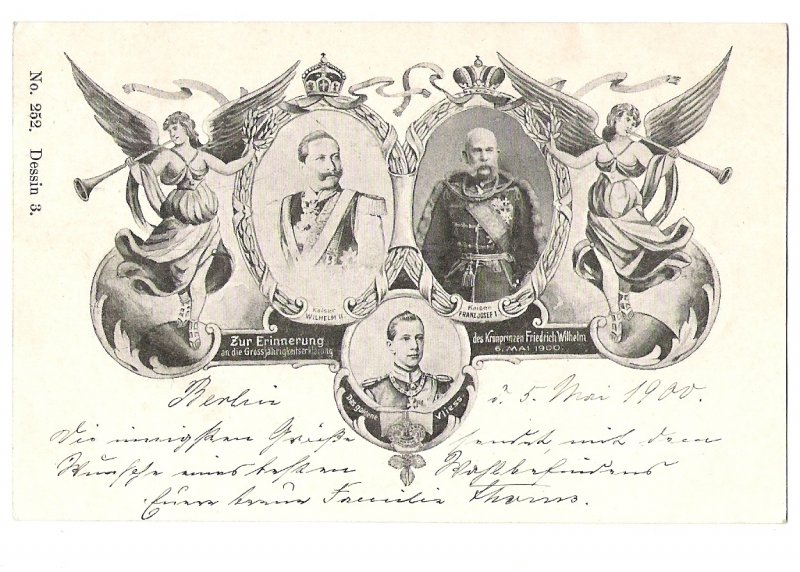 No. 252. Dessin 3.
Kaiser
WILHELM II.
Kaiser
FRANZ JOSEF I.
Zur Erinnerung
an die Grossjährigkeitserklärung
des Kronprinzen Friedrich Wilhelm
6. MAI 1900.
Das goldene Vliess
Berlin d. 5. Mai 1900.
Die innigsten Grüße sendet mit dem
Wunsche eines besten Wohlbefindens
Eure treue Familie Thoms.